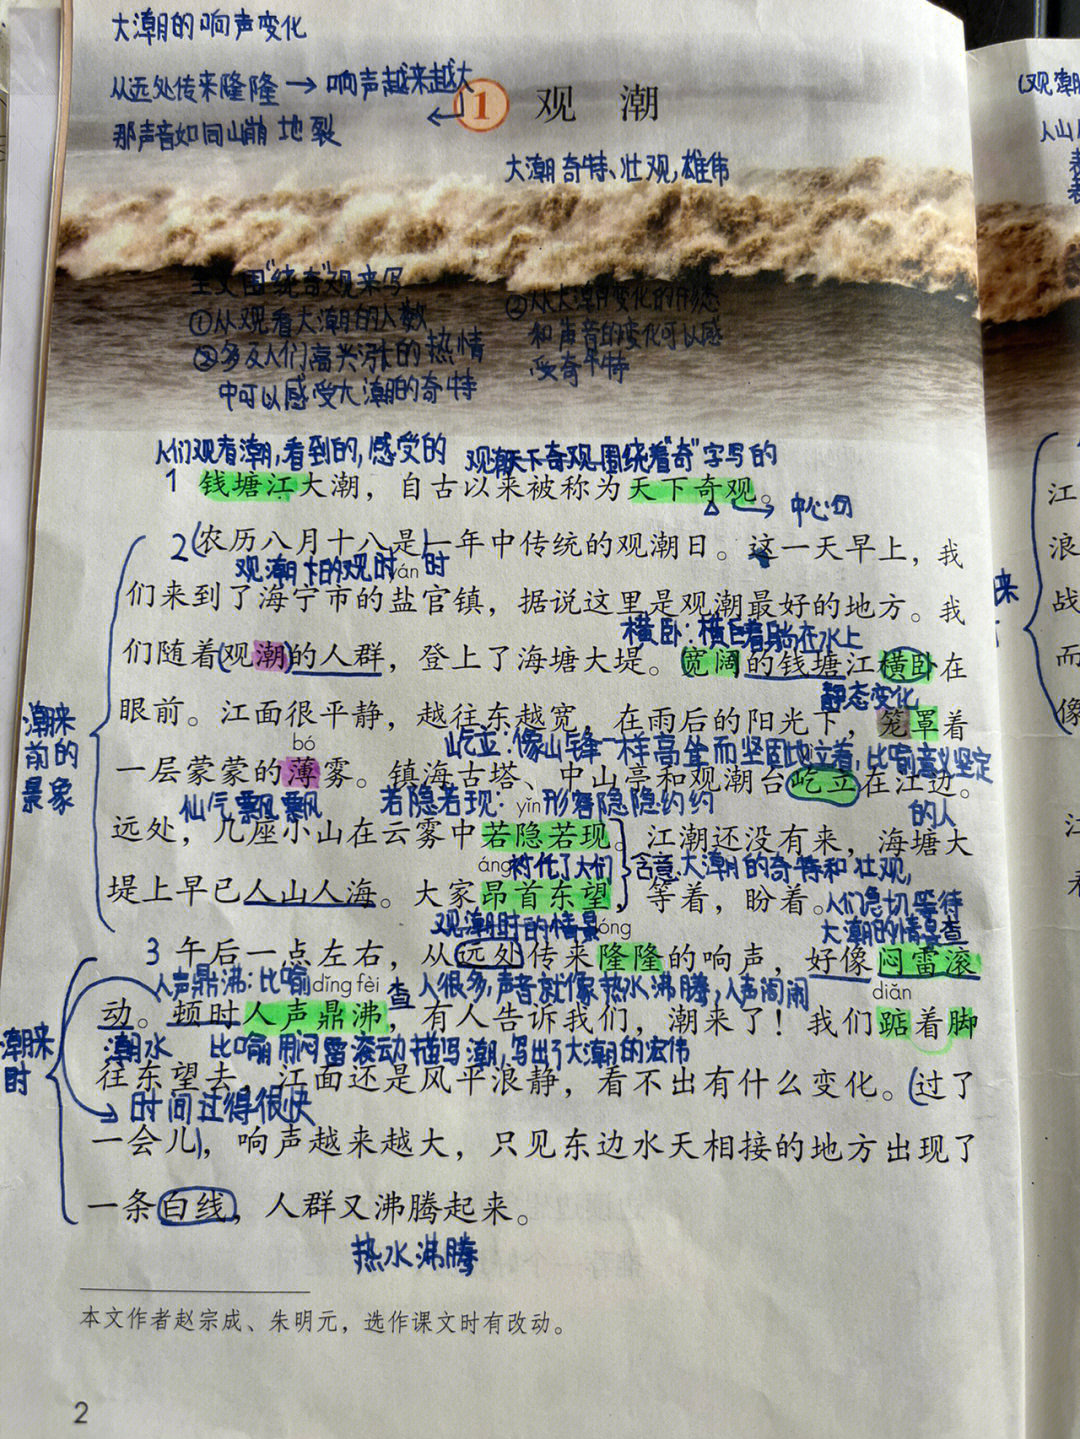 大潮的响声变化
从远处传来隆隆→响声越来越大
那声音如同山崩地裂
1 观 潮
大潮奇特、壮观,雄伟
(观潮
①从观看大潮的人数
②多及人们高兴涨的热情
中可以感受大潮的奇特
②从大潮变化的形态
和声音的变化可以感
受奇特
人们观看潮,看到的,感受的
观潮天下奇观 围绕着"奇"字写的
1 钱塘江大潮，自古以来被称为天下奇观。
中心句
2(农历八月十八是一年中传统的观潮日。这一天早上，我
yán
们来到了海宁市的盐官镇，据说这里是观潮最好的地方。我
横卧:横白着躺在水上
们随着(观潮)的人群，登上了海塘大堤。宽阔的钱塘江横卧在
静态变化
眼前。江面很平静，越往东越宽，在雨后的阳光下，笼罩着
bó
屹立:像山锋一样高耸而坚固地立着,比喻意义坚定
的人
一层蒙蒙的薄雾。镇海古塔、中山亭和观潮台屹立在江边。
仙气飘飘
若隐若现:形容隐隐约约
yǐn
远处，几座小山在云雾中若隐若现。江潮还没有来，海塘大
áng
含意:大潮的奇特和壮观,
堤上早已人山人海。大家昂首东望，等着，盼着。
人们急切等待
大潮的情景
观潮时的情景
lóng
3 午后一点左右，从远处传来隆隆的响声，好像闷雷滚
人声鼎沸:比喻
dǐng fèi
人很多,声音就像热水沸腾,人声闹闹
diǎn
动。顿时人声鼎沸，有人告诉我们，潮来了！我们踮着脚
潮水
比喻用闷雷滚动描写潮,写出了大潮的宏伟
往东望去，江面还是风平浪静，看不出有什么变化。(过了
时间过得很快
一会儿)，响声越来越大，只见东边水天相接的地方出现了
一条白线，人群又沸腾起来。
热水沸腾
潮来
前的
景象
潮来
时
本文作者赵宗成、朱明元，选作课文时有改动。
2
江
浪
战
而
像
江